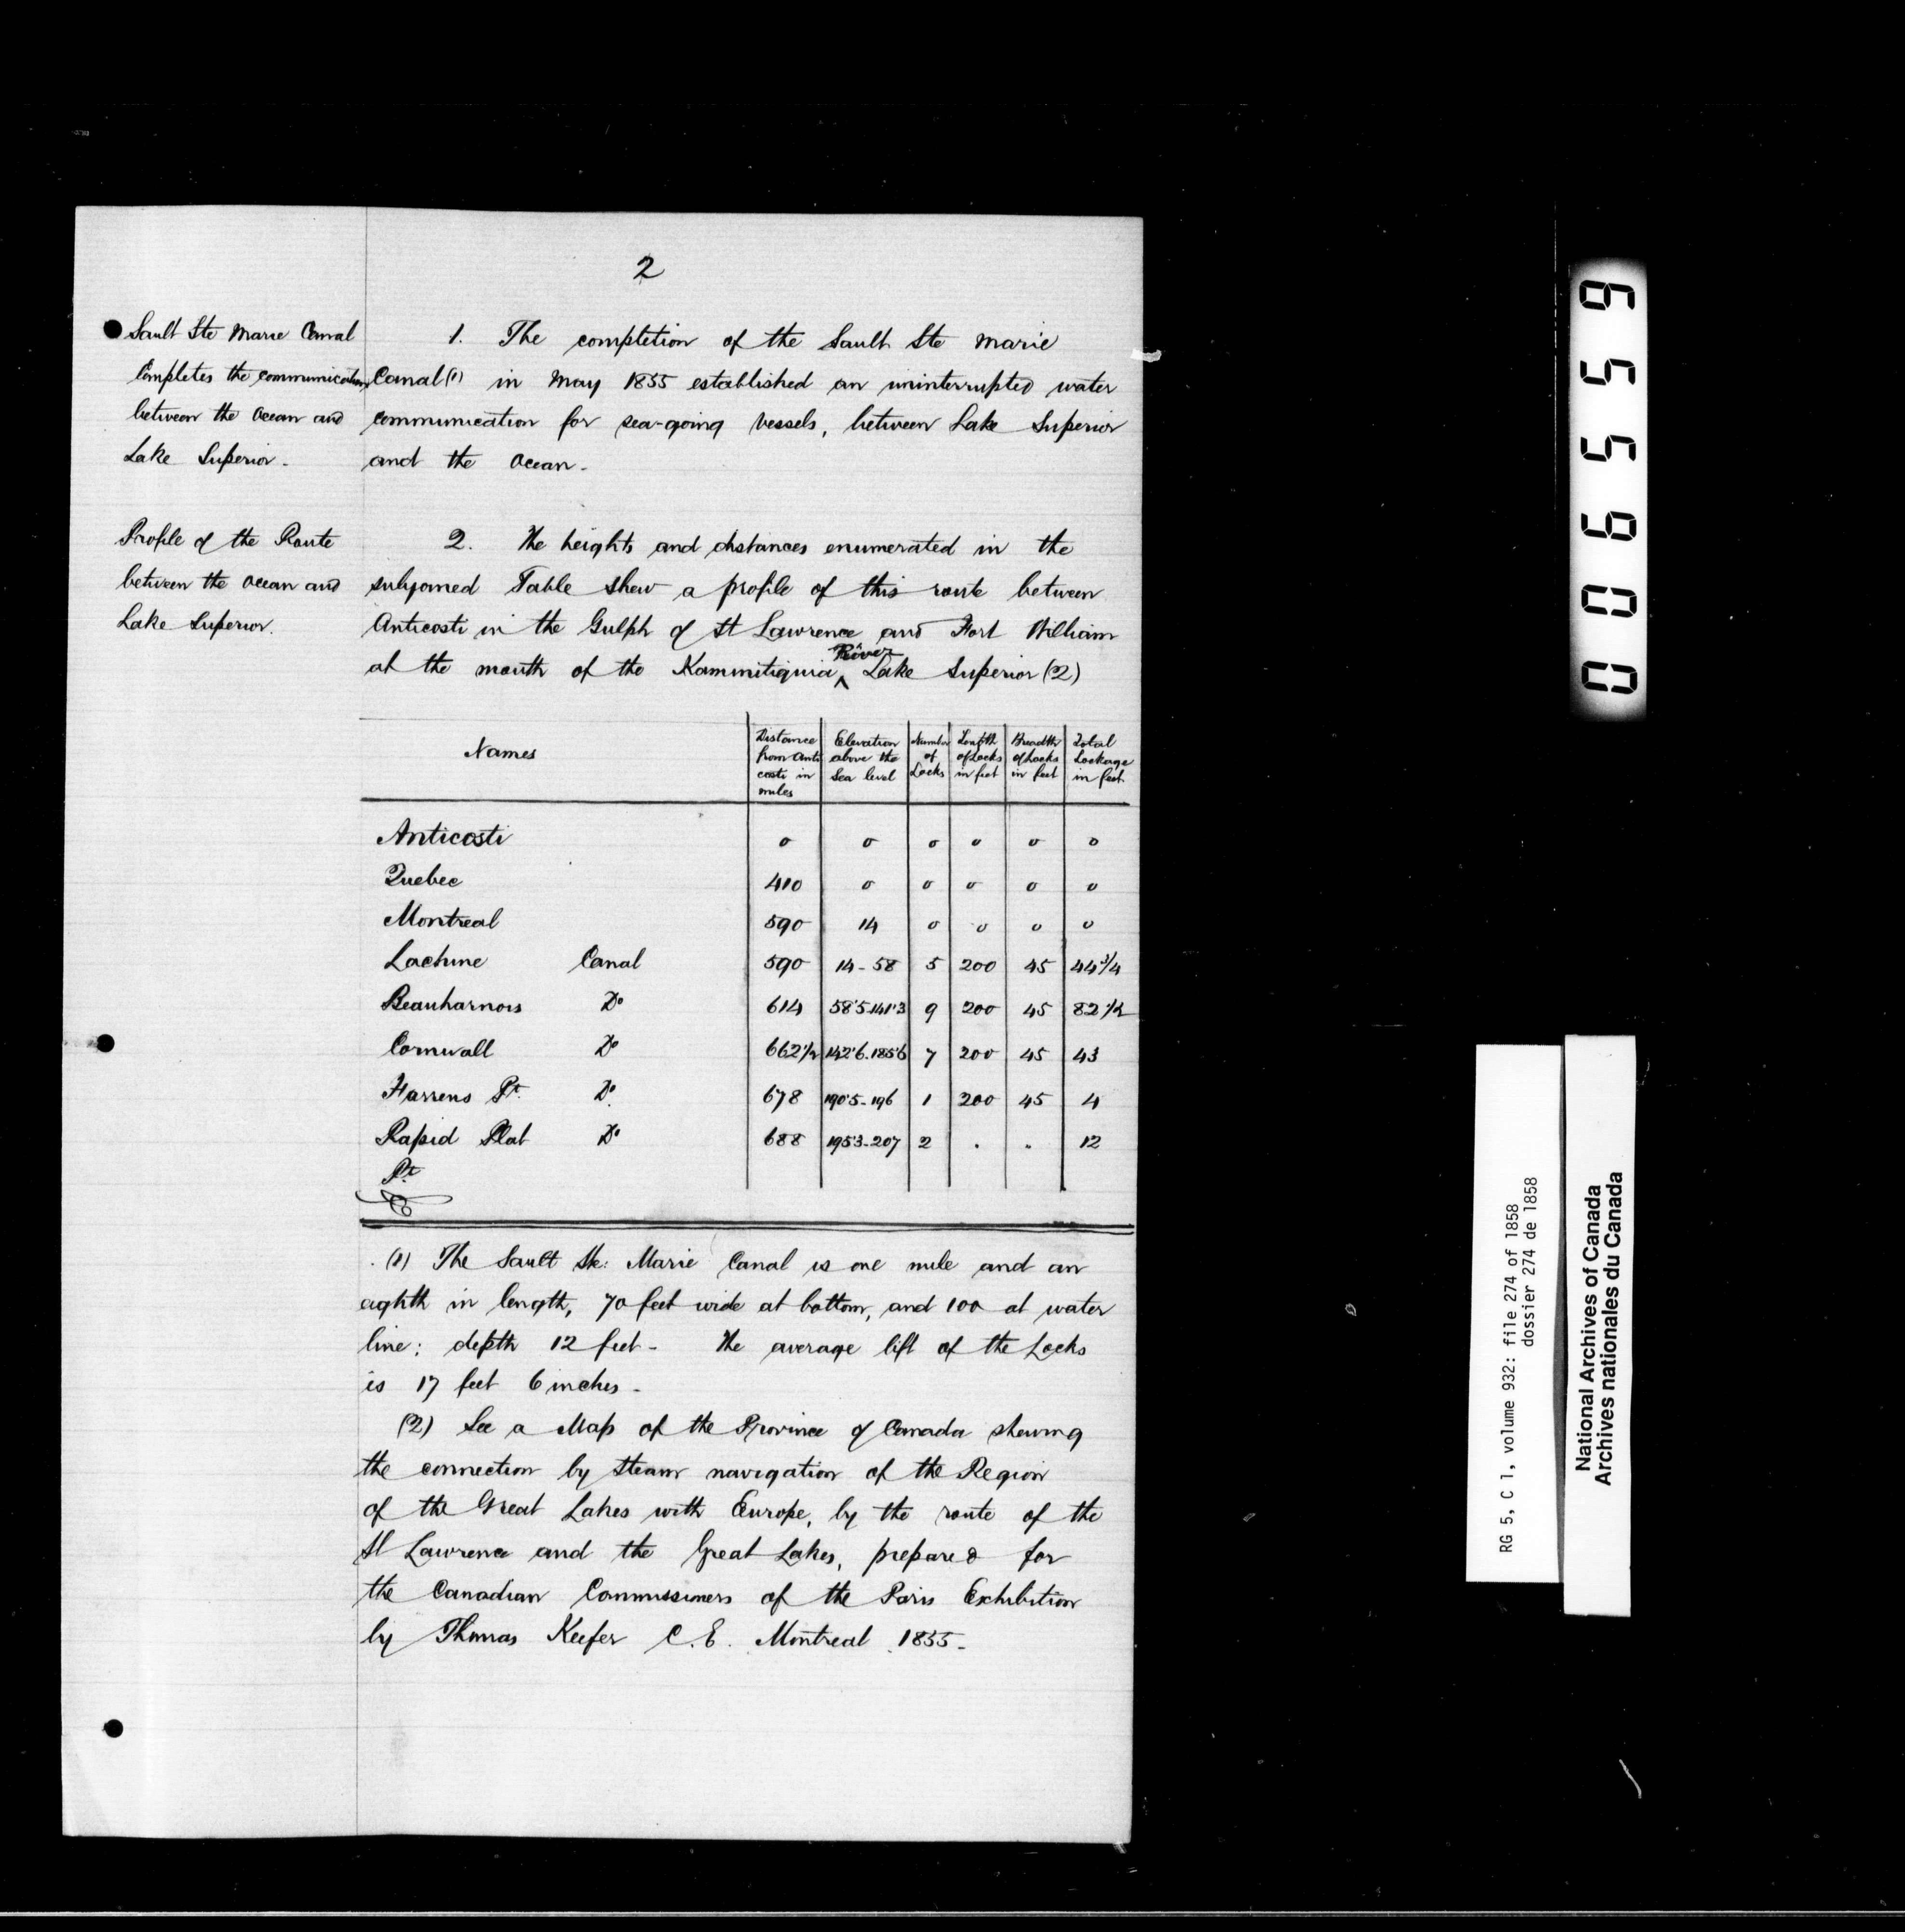 2
Sault Ste Marie Canal
Completes the communication
between the Ocean and
Lake Superior.
1. The completion of the Sault Ste Marie
Canal (1) in May 1855 established an uninterrupted water
communication for sea-going vessels, between Lake Superior
and the Ocean.
Profile of the Route
between the Ocean and
Lake Superior.
2. The heights and distances enumerated in the
subjoined Table shew a profile of this route between
Anticosti in the Gulph of St Lawrence and Fort William
at the mouth of the Kaministiquia River Lake Superior (2)
Names | Distance from Anticosti in miles | Elevation above the Sea level | Number of Locks | Length of Locks in feet | Breadth of Locks in feet | Total Lockage in feet
Anticosti 0 0 0 0 0 0
Quebec 410 0 0 0 0 0
Montreal 590 14 0 0 0 0
Lachine Canal 590 14-58 5 200 45 44 3/4
Beauharnois Do 614 58'5-141'3 9 200 45 82 1/2
Cornwall Do 662 1/2 142'6-185'6 7 200 45 43
Farrens Pt. Do 678 190'5-196 1 200 45 4
Rapid Plat Do 688 195'3-207 2 . . 12
Pt
(1) The Sault Ste: Marie Canal is one mile and an
eighth in length, 70 feet wide at bottom, and 100 at water
line; depth 12 feet - The average lift of the Locks
is 17 feet 6 inches -
(2) See a Map of the Province of Canada shewing
the connection by steam navigation of the Region
of the Great Lakes with Europe, by the route of the
St Lawrence and the Great Lakes, prepared for
the Canadian Commissioners of the Paris Exhibition
by Thomas Keefer C.E. Montreal 1855-
006559
RG 5, C 1, volume 932: file 274 of 1858
dossier 274 de 1858
National Archives of Canada
Archives nationales du Canada